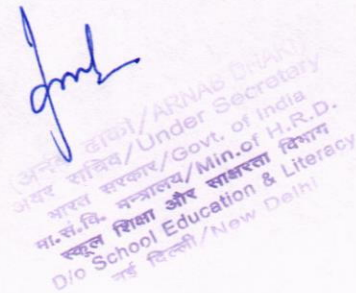 (अर्नब ढाकी/ARNAB DHAKI)
अवर सचिव/Under Secretary
भारत सरकार/Govt. of India
मा.सं.वि. मन्त्रालय/Min.of H.R.D.
स्कूल शिक्षा और साक्षरता विभाग
D/o School Education & Literacy
नई दिल्ली/New Delhi